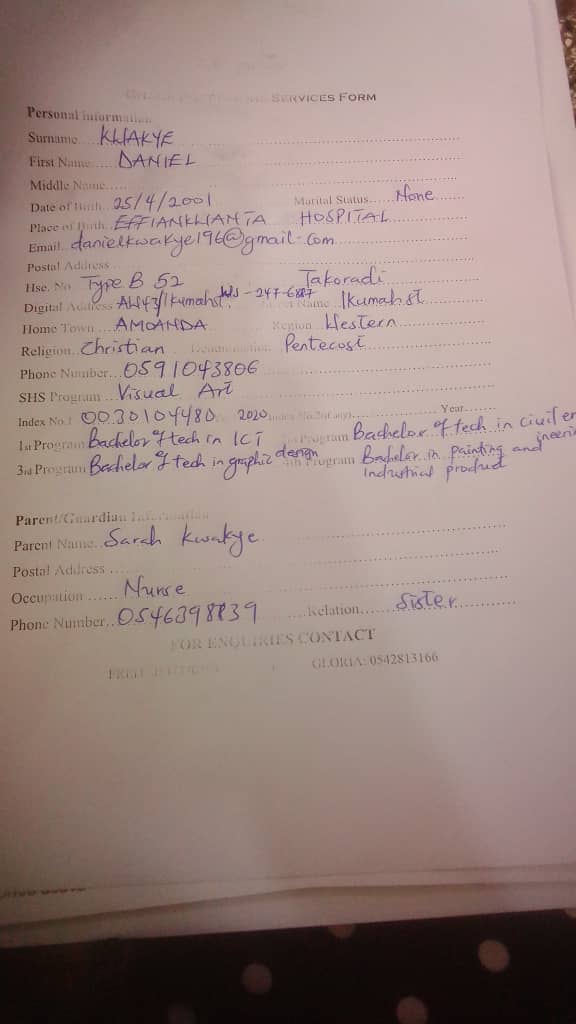 SERVICES FORM
Personal information
Surname.....KWAKYE
First Name.....DANIEL
Middle Name.....
Date of Birth..25/4/2001 Marital Status.....None
Place of Birth..EFFIANKWANTA HOSPITAL
Email..danielkwakye196@gmail.com
Postal Address
Hse. No Type B 52 Takoradi
Digital Address Name Ikumah st
Home Town....AMOANDA Region Western
Religion..Christian Pentecost
Phone Number...0591043806
SHS Program...Visual Art
Index No.1 0030104480 2020 Year.....
1st Program Bachelor of tech in ICT Program Bachelor of tech in civil engineering
3rd Program Bachelor of tech in graphic design Program Bachelor in painting and Industrial product
Parent/Guardian Information
Parent Name..Sarah Kwakye
Postal Address ......
Occupation ......Nurse
Phone Number..0546398839 Relation......Sister
FOR ENQUIRIES CONTACT
GLORIA: 0542813166